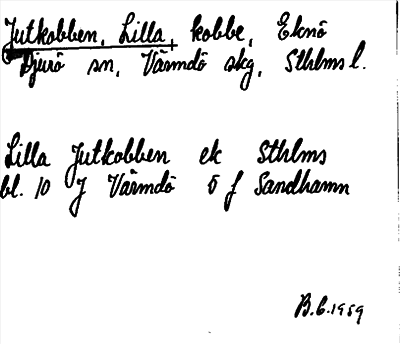 Jutkobben, Lilla, kobbe, Eknö
Djurö sn, Värmdö skg, Sthlms l.
Lilla Jutkobben ek Sthlms
bl. 10 J Värmdö 5 f Sandhamn
B.G. 1959